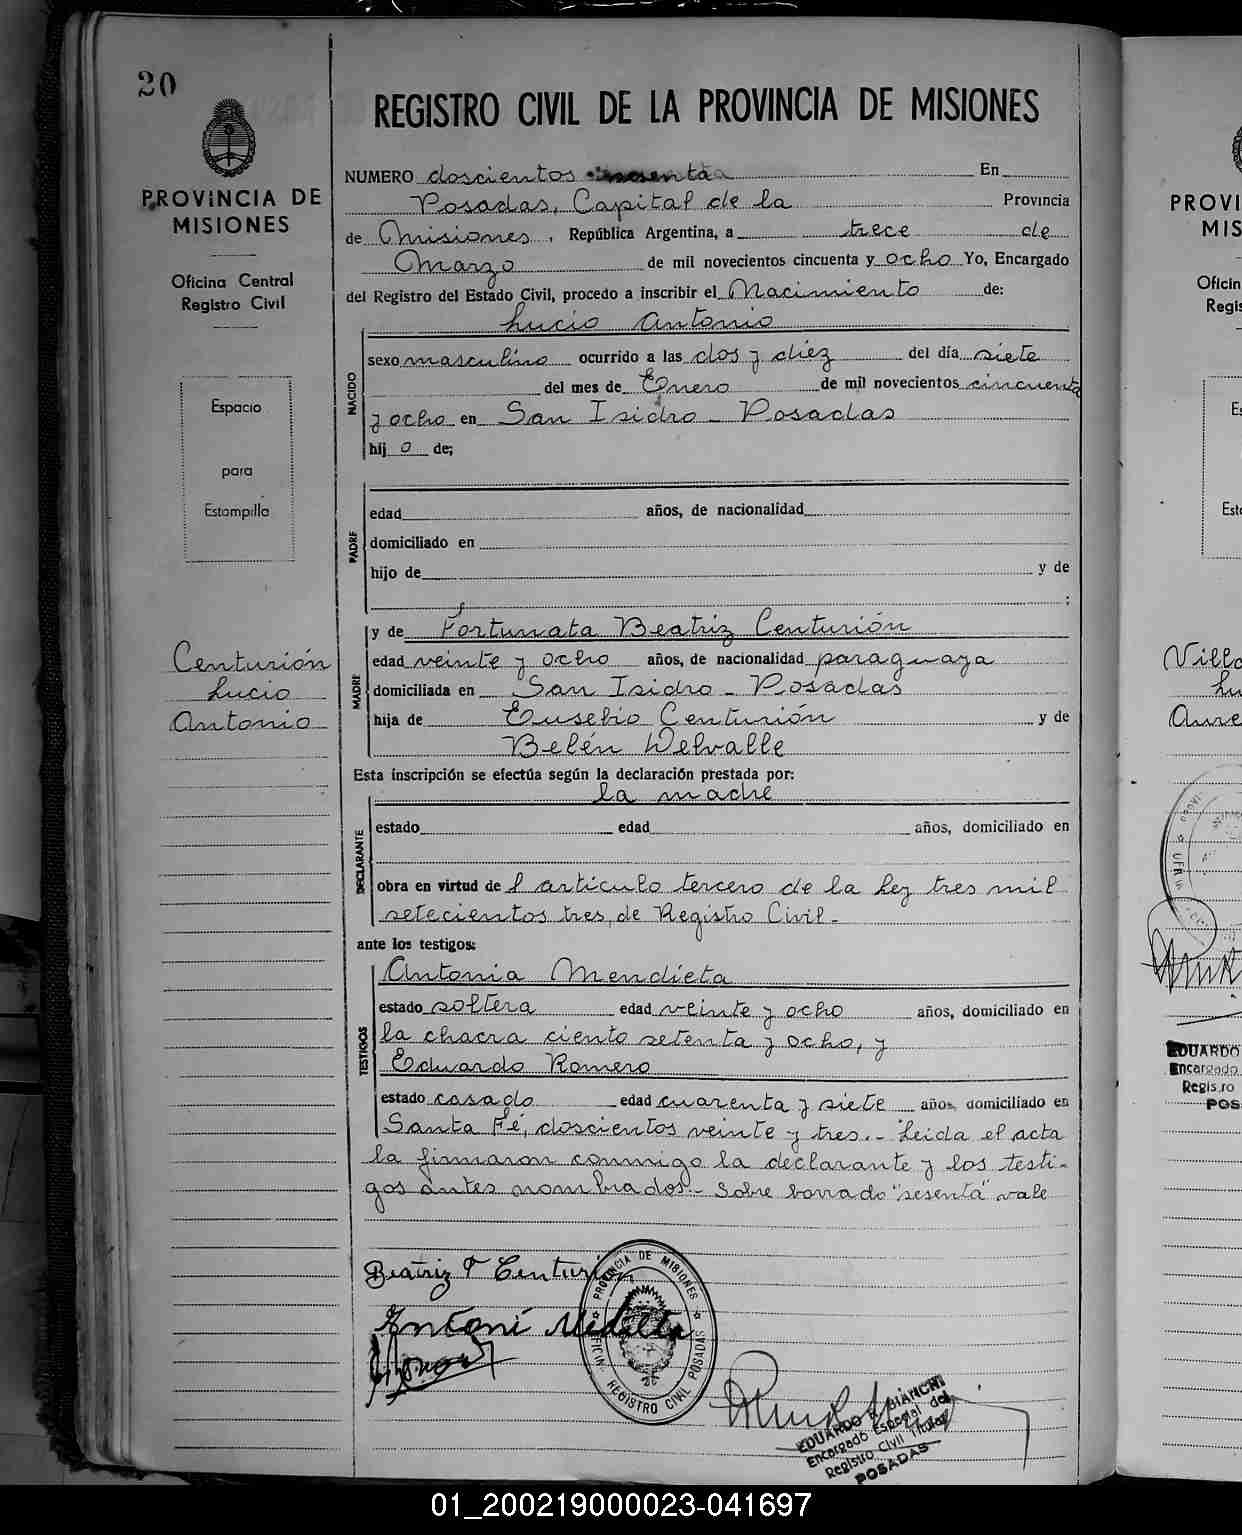 20
PROVINCIA DE
MISIONES
Oficina Central
Registro Civil
Espacio
para
Estampilla
Centurión
Lucio
Antonio
REGISTRO CIVIL DE LA PROVINCIA DE MISIONES
NUMERO doscientos sesenta En
Posadas, Capital de la Provincia
de Misiones, República Argentina, a trece de
Marzo de mil novecientos cincuenta y ocho Yo, Encargado
del Registro del Estado Civil, procedo a inscribir el Nacimiento de:
Lucio Antonio
NACIDO
sexo masculino ocurrido a las dos y diez del día siete
del mes de Enero de mil novecientos cincuenta
y ocho en San Isidro - Posadas
hij o de;
PADRE
edad años, de nacionalidad
domiciliado en
hijo de y de
;
MADRE
y de Fortunata Beatriz Centurión
edad veinte y ocho años, de nacionalidad paraguaya
domiciliada en San Isidro - Posadas
hija de Eusebio Centurión y de
Belén Delvalle
Esta inscripción se efectúa según la declaración prestada por:
la madre
DECLARANTE
estado edad años, domiciliado en
obra en virtud de l artículo tercero de la Ley tres mil
setecientos tres, de Registro Civil.-
ante los testigos:
TESTIGOS
Antonia Mendieta
estado soltera edad veinte y ocho años, domiciliado en
la chacra ciento setenta y ocho, y
Eduardo Romero
estado casado edad cuarenta y siete años, domiciliado en
Santa Fé, doscientos veinte y tres.- Leida el acta
la firmaron conmigo la declarante y los testi-
gos antes nombrados.- Sobre borrado "sesenta" vale
Beatriz F Centurión
PROVINCIA DE MISIONES
REGISTRO CIVIL POSADAS
EDUARDO BIANCHI
Encargado Especial del
Registro Civil Titular
POSADAS
PROVI
MIS
Oficin
Regis
Villa
Lu
Aure
EDUARDO
Encargado
Registro
POS
01_200219000023-041697